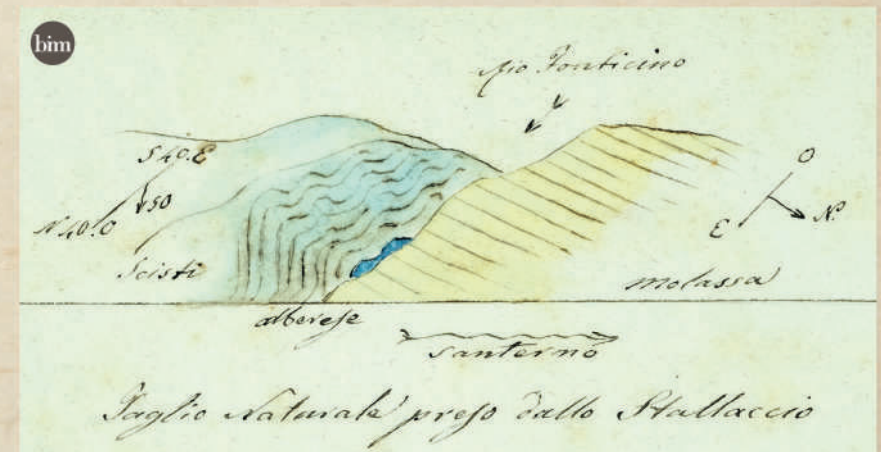 bim
Rio Fonticino
S 40. E
50
N. 40. O
Scisti
O
E
N.
molassa
alberese
Santerno
Taglio Naturale preso dallo Stallaccio